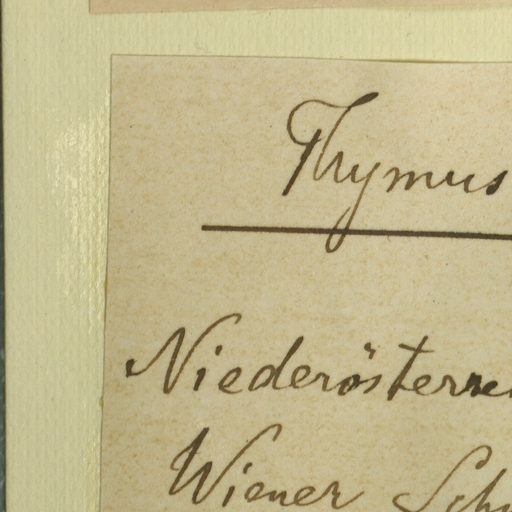 Thymus
Niederösterrei
Wiener Sch